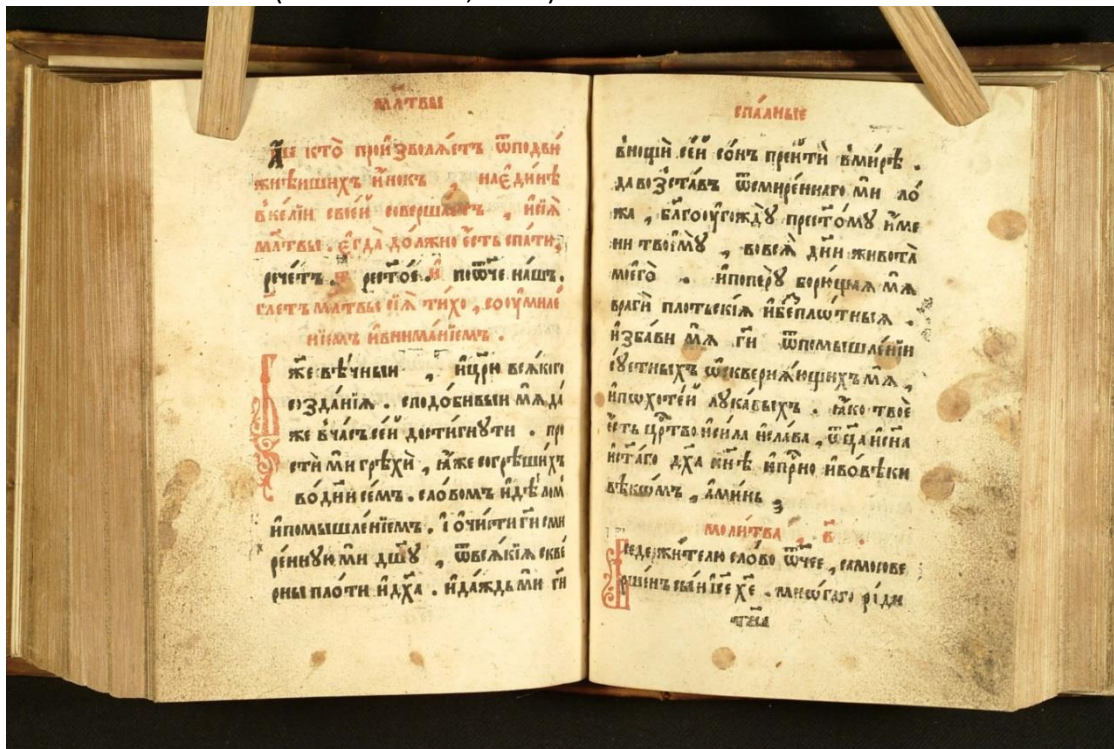 мл҃твы
А҆ще кто̀ прои҆зволѧ́етъ ѿподви́
жнѣишихъ и҆нокъ , нає҆ди́нѣ
вке́лїи свое́й соверша́етъ , и҆сїѧ̀
мл҃твы . є҆гда̀ до́лжно є҆сть спа́ти,
рече́тъ . трест҃ое . и҆ поѿ҆че на́шъ .
гл҃етъ мл҃твы сїѧ̀ ти́хо , соѹ҆миле́
нїемъ и҆внима́нїемъ .
Гж҃е вѣ́чныи , и҆цр҃ю всѧ́кого
созда́нїѧ . сподо́бивыи мѧ̀ да́
же вча́съ се́й дости́гнꙋти . про
сти́ ми грѣхѝ , ꙗ҆́же согрѣши́хъ
во́ дн҃и се́мъ . сло́вомъ и҆дѣ́ломъ
и҆помышле́нїемъ . і҆ ѡ҆чи́сти гд҃и сми
ре́ннꙋю ми дш҃ꙋ , ѿвсѧ́кїѧ скве́
рны пло́ти и҆дх҃а . и҆да́ждь ми гд҃и
спа́лные
вно́щи се́й со́нъ прейтѝ вми́рѣ .
да воз̾ста́въ ѿсмире́ннаго ми ло́
жа , бл҃гоѹ҆гождꙋ̀ прест҃о́мꙋ и҆́ме
ни твоемꙋ̀ , вовсѧ̀ дн҃и живота̀
моего̀ . и҆поперꙋ̀ борю́щыѧ мѧ̀
врагѝ пло́тьскїѧ и҆беспло́тныѧ .
и҆зба́ви мѧ̀ гд҃и ѿпомышле́нїи
сꙋ́етныхъ ѡ҆скверня́ющихъ мѧ̀ ,
и҆по́хотей лꙋка́выхъ . ꙗ҆́ко твоѐ
є҆́сть црт҃во и҆си́ла и҆сла́ва , ѻ҆ц҃а и҆сн҃а
и҆ст҃а́го дх҃а нн҃ѣ и҆при́сно и҆вовѣ́ки
вѣкѡ́мъ , а҆ми́нь
моли́тва , в҃ .
Вседержи́телю сло́во ѻ҆́ч҃ее , самосове
рше́нъ сы́и і҆се хе҃ . мно́гаго ра́ди